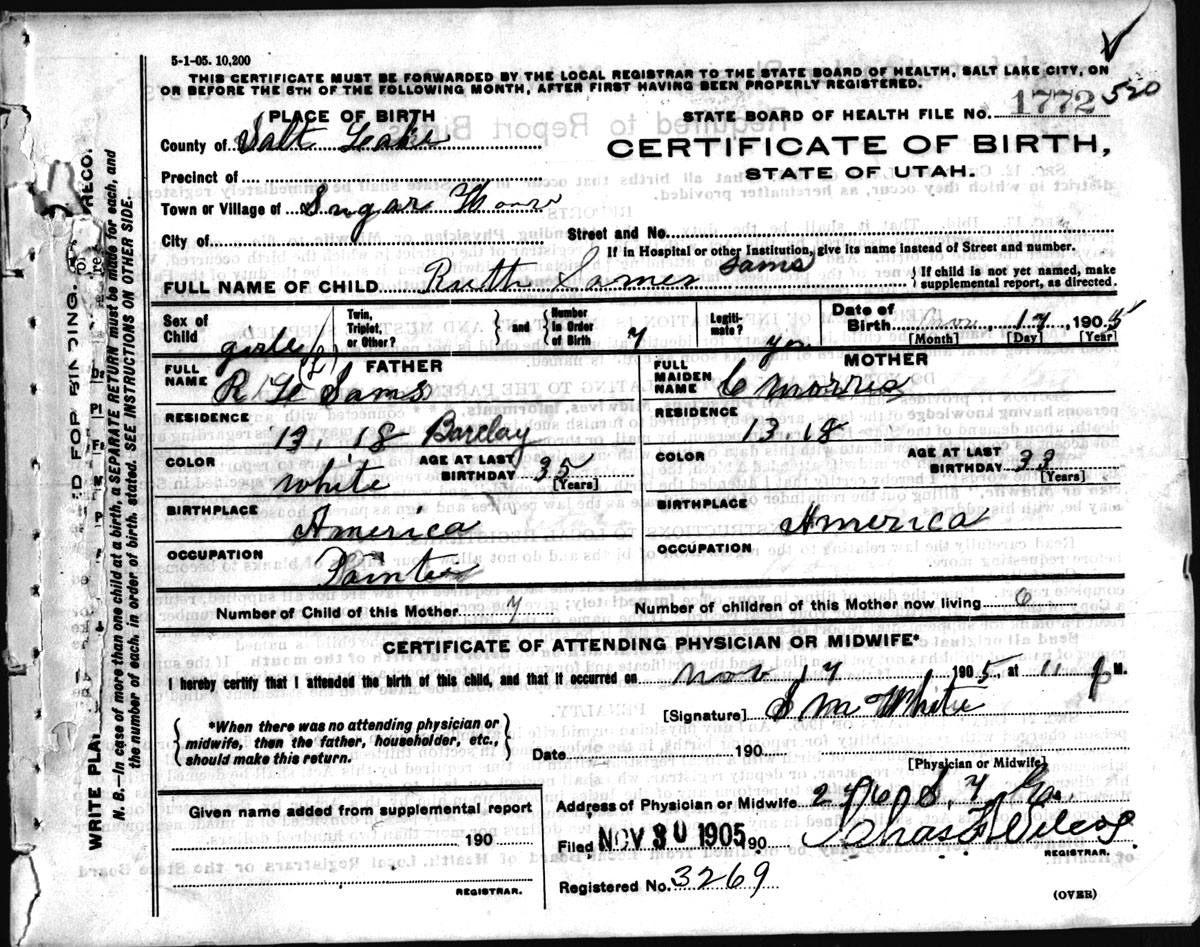 5-1-05. 10,200
THIS CERTIFICATE MUST BE FORWARDED BY THE LOCAL REGISTRAR TO THE STATE BOARD OF HEALTH, SALT LAKE CITY, ON
OR BEFORE THE 5TH OF THE FOLLOWING MONTH, AFTER FIRST HAVING BEEN PROPERLY REGISTERED.
PLACE OF BIRTH
STATE BOARD OF HEALTH FILE NO. 1772 520
County of Salt Lake
CERTIFICATE OF BIRTH,
STATE OF UTAH.
Precinct of
Town or Village of Sugar House
City of Street and No.
If in Hospital or other Institution, give its name instead of Street and number.
Sams
FULL NAME OF CHILD Ruth Sames { If child is not yet named, make supplemental report, as directed.
Sex of Child girle Twin, Triplet, or Other? } and { Number in Order of Birth 7 Legitimate? yes Date of Birth Nov, 17, 1905
[Month] [Day] [Year]
FATHER
FULL NAME R Sams
RESIDENCE
13, 18 Barclay
COLOR white AGE AT LAST BIRTHDAY 35 [Years]
BIRTHPLACE
America
OCCUPATION
Painter
MOTHER
FULL MAIDEN NAME C Morris
RESIDENCE
13 18
COLOR AGE AT LAST BIRTHDAY 33 [Years]
BIRTHPLACE
America
OCCUPATION
Number of Child of this Mother 7 Number of children of this Mother now living 6
CERTIFICATE OF ATTENDING PHYSICIAN OR MIDWIFE*
I hereby certify that I attended the birth of this child, and that it occurred on Nov 17 1905, at 11 P M.
{ *When there was no attending physician or midwife, then the father, householder, etc., should make this return. }
[Signature] S M White
Date 190
[Physician or Midwife]
Given name added from supplemental report
190
REGISTRAR.
Address of Physician or Midwife
Filed NOV 30 1905 90 Chas Wilcox
REGISTRAR.
Registered No. 3269
(OVER)
N. B.—In case of more than one child at a birth, a SEPARATE RETURN must be made for each, and
the number of each, in order of birth, stated. SEE INSTRUCTIONS ON OTHER SIDE.